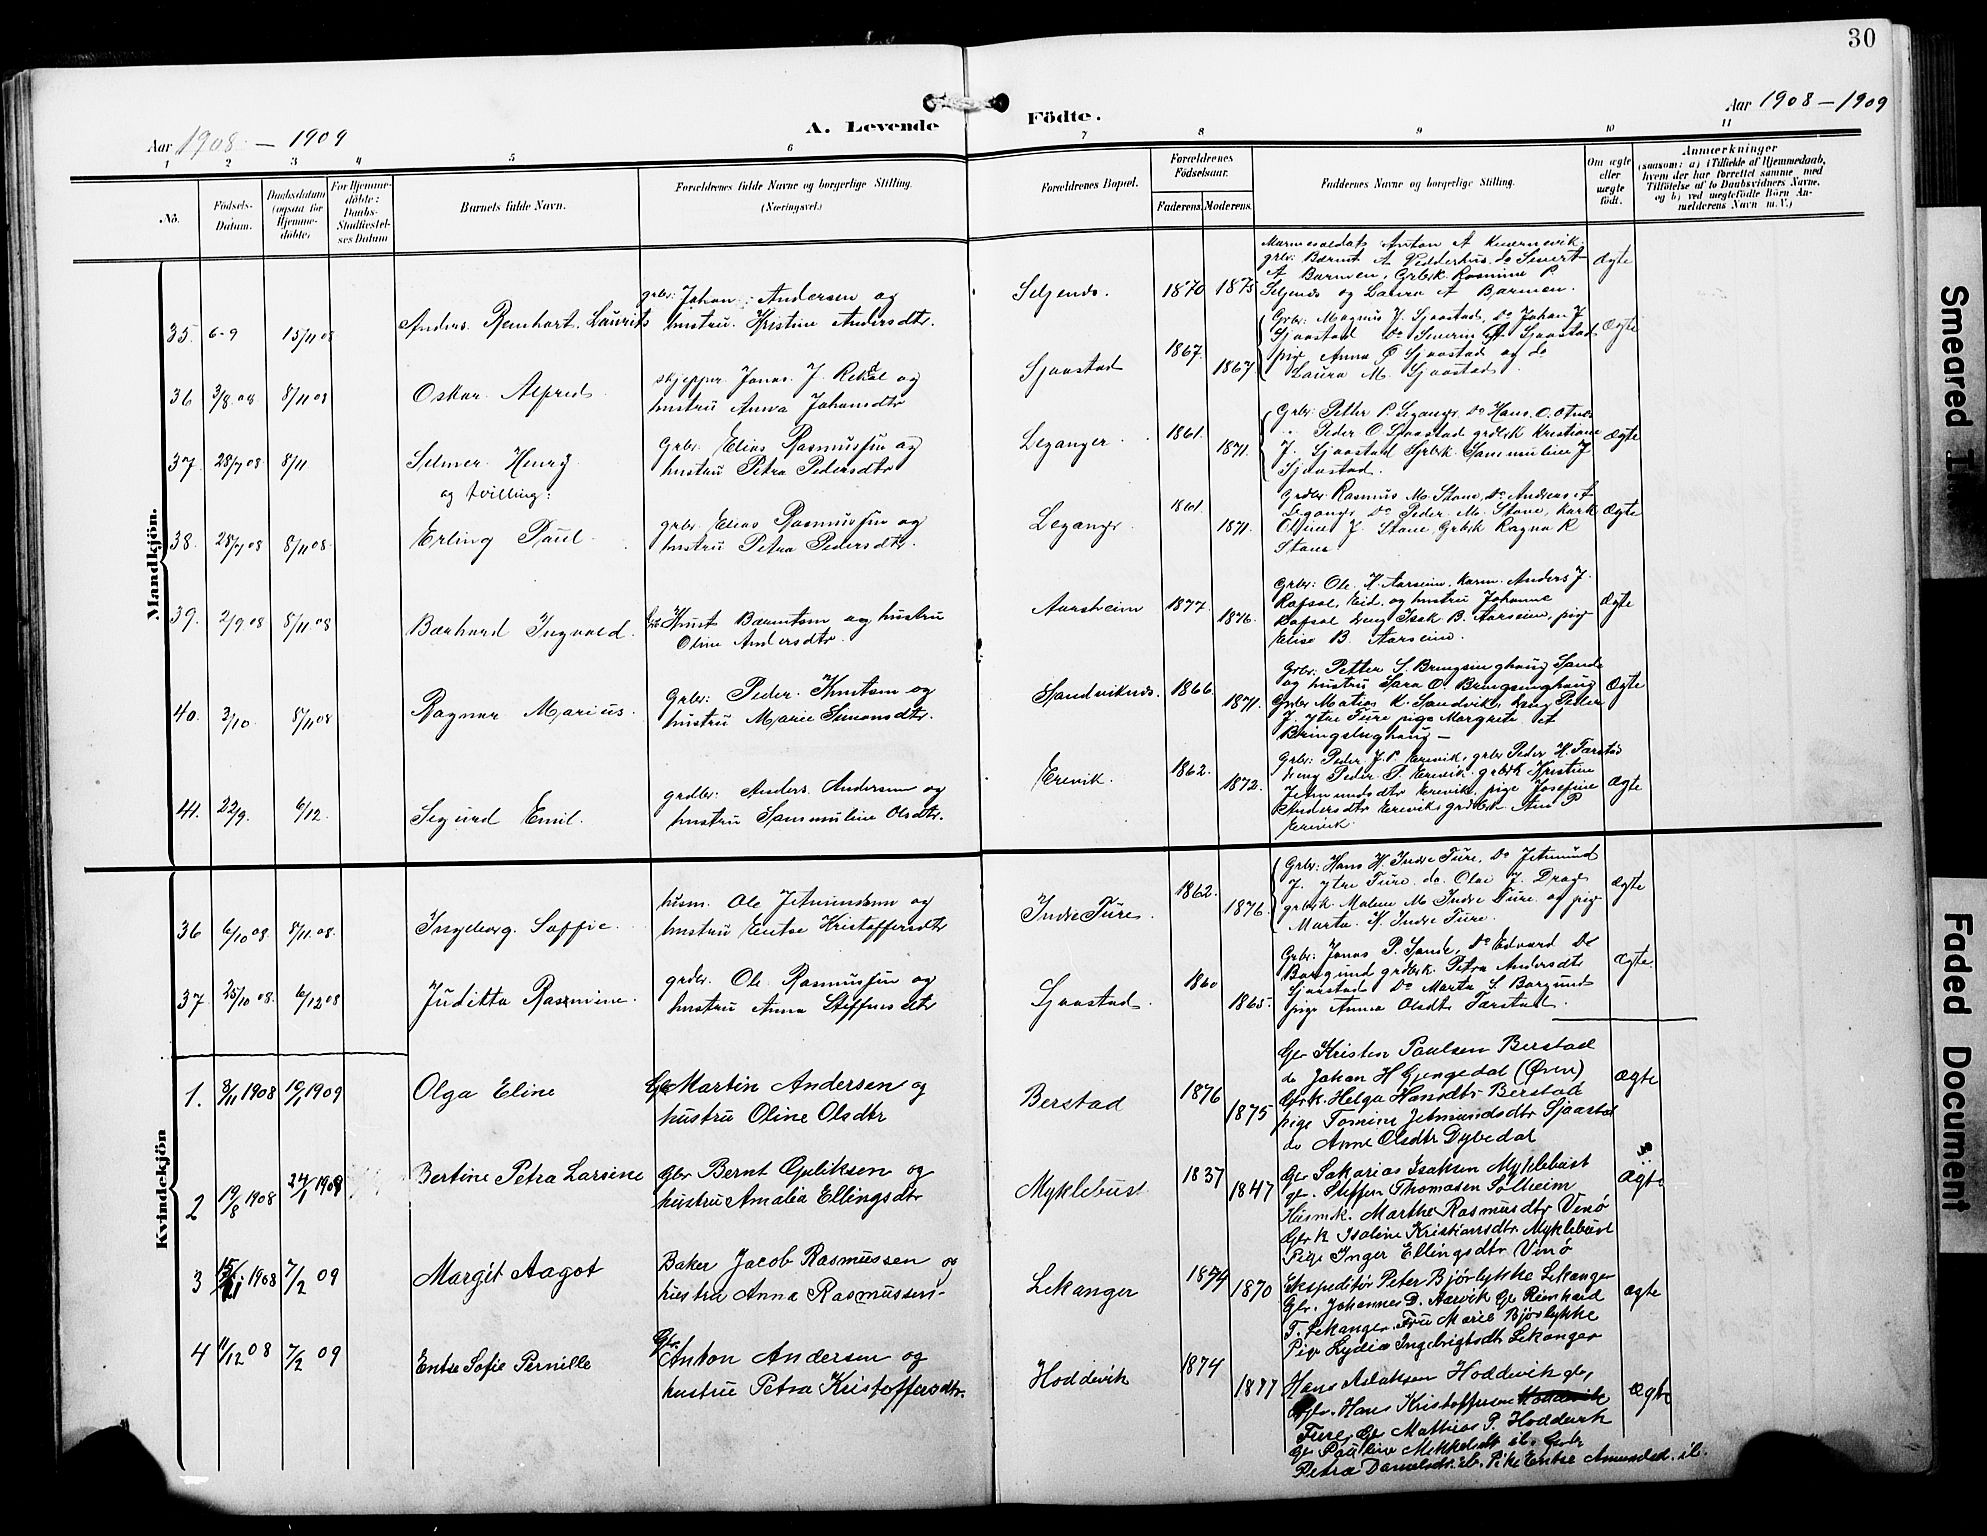 30
Aar 1908 – 1909
A. Levende Födte.
Aar 1908 – 1909
1 2 3 4 5 6 7 8 9 10 11
No.
Födsels-Datum.
Daabsdatum (ogsaa for Hjemmedöbte)
For Hjemmedöbte: Daabs-Stadfæstelses Datum
Barnets fulde Navn.
Forældrenes fulde Navne og borgerlige Stilling. (Næringsvei.)
Forældrenes Bopæl.
Forældrenes Födselsaar.
Faderens. Moderens.
Faddernes Navne og borgerlige Stilling.
Om ægte eller uægte födt.
Anmærkninger
(saasom: a) i Tilfælde af Hjemmedaab,
hvem der har forrettet samme med
Tilföielse af to Daabsvidners Navne,
og b) ved uægtefödte Börn Anmelderens Navn m. V.)
Mandkjön.
35. 6-9 15/11 08 Anders Reinhart Laurits
grbr. Johan Andersen og
hustru Kristine Andersdtr.
Seljenes. 1870 1875
Seljenes og Laura A Barmen.
Ægte
36 3/8 08 8/11 08 Oskar Alfred
skjepper Jonas J. Rekdal og
hustru Anna Johansdtr
Sjaastad 1867. 1867
Grbr. Magnus J. Sjaastad, Do Johan J
Sjaastad Do Severin A Sjaastad
pige Anna O Sjaastad og do
Laura M. Sjaastad.
Ægte
37. 28/7 08 8/11 Selmer Henry
og tvilling:
Grbr. Elias Rasmussen og
hustru Petra Pedersdtr
Leganger. 1861. 1871.
Peder O. Sjaastad
J. Sjaastad
Sjaastad.
Ægte
38. 28/7 08 8/11 08 Erling Paul
grbr. Elias Rasmussen og
hustru Petra Pedersdtr.
Leganger. 1861. 1871.
Grdbr. Rasmus M. Stane, Do Andreas A
Leganger Do Peder M. Stane,
Oline J. Stane, Grbrk Ragna R
Stane
Ægte
39. 2/9 08 8/11 08 Bærhard Ingvald.
Knut Berntsen og hustru
Oline Andersdtr
Aarsheim 1877. 1876.
Grbr: Ole K. Aarseim, Anders J.
Rafsol, Eid, og hustru Johanne
Rafsol, Isak B. Aarseim, pige
Elise B. Aarseim.
Ægte
40. 3/10. 8/11 08 Ragnar Marius.
Grbr: Peder Knutsen og
hustru Marie Simonsdtr.
Sandviknes. 1866. 1871.
Grbr. Petter S. Bringsinghaug Sande
og hustru Sara O. Bringsinghaug
Grbr Matias K. Sandvik, Peder
J. ytre Fure pige Margrete A
Bringsinghaug –
Ægte
41. 22/9. 6/12. Sigurd Emil.
grdbr: Anders Andersen og
hustru Sammuline Olsdtr.
Ervik. 1862. 1872.
Grbr: Peder J. P. Ervik, grbr Peder H. Tarstad
Peder P. Ervik, grbrk Kristine
Jetmundsdtr Ervik, pige Josefine
Andersdtr Ervik, An P
Ervik.
Ægte
Kvindekjön
36 6/10 08. 8/11. 08. Ingeborg Soffie.
husm. Ole Jetmundsen og
hustru Entse Kristoffersdtr
Indre Fure. 1862. 1876.
Grbr. Hans H. Indre Fure, Do Jetmund
J. ytre Fure do Olai J. Drage
grbrk Malene M Indre Fure og pige
Marta H Indre Fure.
Ægte
37 25/10 08. 6/12 08 Juditta Rasmine.
grdbr. Ole Rasmussen og
hustru Anna Steffensdtr
Sjaastad. 1860 1865.
Grbr: Jonas P. Sande, Do Edvard De
Borgund grdbrk Petra Andersdtr
Sjaastad Do Marta S Borgund
pige Anna Olsdtr Tarstad.
Ægte.
1. 8/11 1908 10/1 1909 Olga Eline
Gbr Martin Andersen og
hustru Oline Olsdtr
Berstad 1876 1875
Gbr Kristen Paulsen Berstad
do Johan H Gjengedal (Øren)
Gbrk. Helga Hansdtr Berstad
pige Tomine Jetmundsdtr Sjaastad
do Anne Olsdtr Dybedal
Ægte
2 19/8 1908 24/1 1909 Bertine Petra Larsine
Gbr Bernt Opliksen og
hustru Amalia Ellingsdtr
Myklebust 1837 1847
Gbr Sakarias Isaksen Myklebust
gbr. Steffen Thomasen Solheim
Husmk. Marthe Rasmusdtr Venö
Gbrk Isaline Kristiansdtr Myklebust
Pige Inger Ellingsdtr Venö
Ægte
3 1908 7/2 09 Margit Aagot
Baker Jacob Rasmussen og
hustru Anna Rasmussen
Lekanger 1874 1870
Ekspeditør Peter Bjørlykke Lekanger
Gbr. Johannes D. Aarvik Gbr Reinhard
T. Lekanger. Fru Marie Bjørlykke
Pige Lydia Ingebrigtsdtr Lekanger
Ægte
4 11/12 08 7/2 09 Entse Sofie Pernille
Gbr Anton Andersen og
hustru Petra Kristoffersdtr.
Hoddevik 1874 1877
Hans Aslaksen Hoddevik gbr,
Gbr. Hans Kristoffersen
Fure, Gbr Mathias P. Hoddevik
Petra Danielsdtr. ib. Pike Entse Amundsd. ib.
Ægte
Smeared
Faded Document